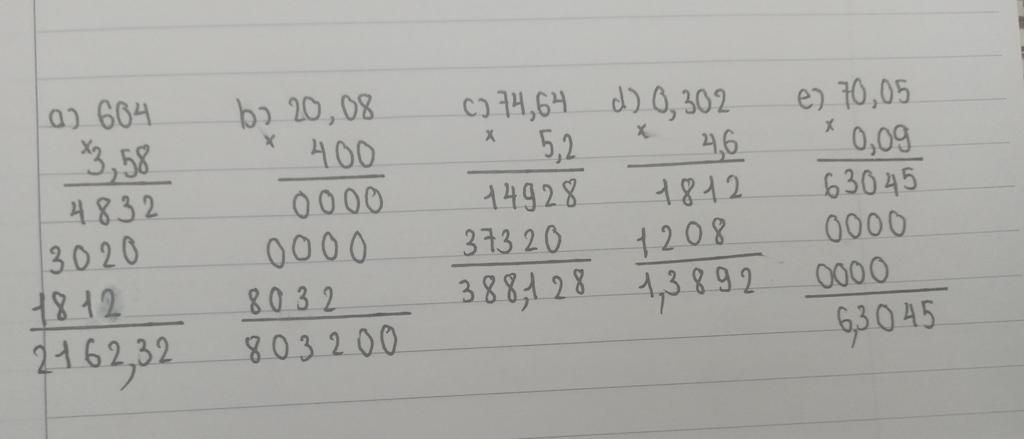 a) 604
x 3,58
4832
3020
1812
2162,32
b) 20,08
x 400
0000
0000
8032
803200
c) 74,64
x 5,2
14928
37320
388,128
d) 0,302
x 4,6
1812
1208
1,3892
e) 70,05
x 0,09
63045
0000
0000
6,3045